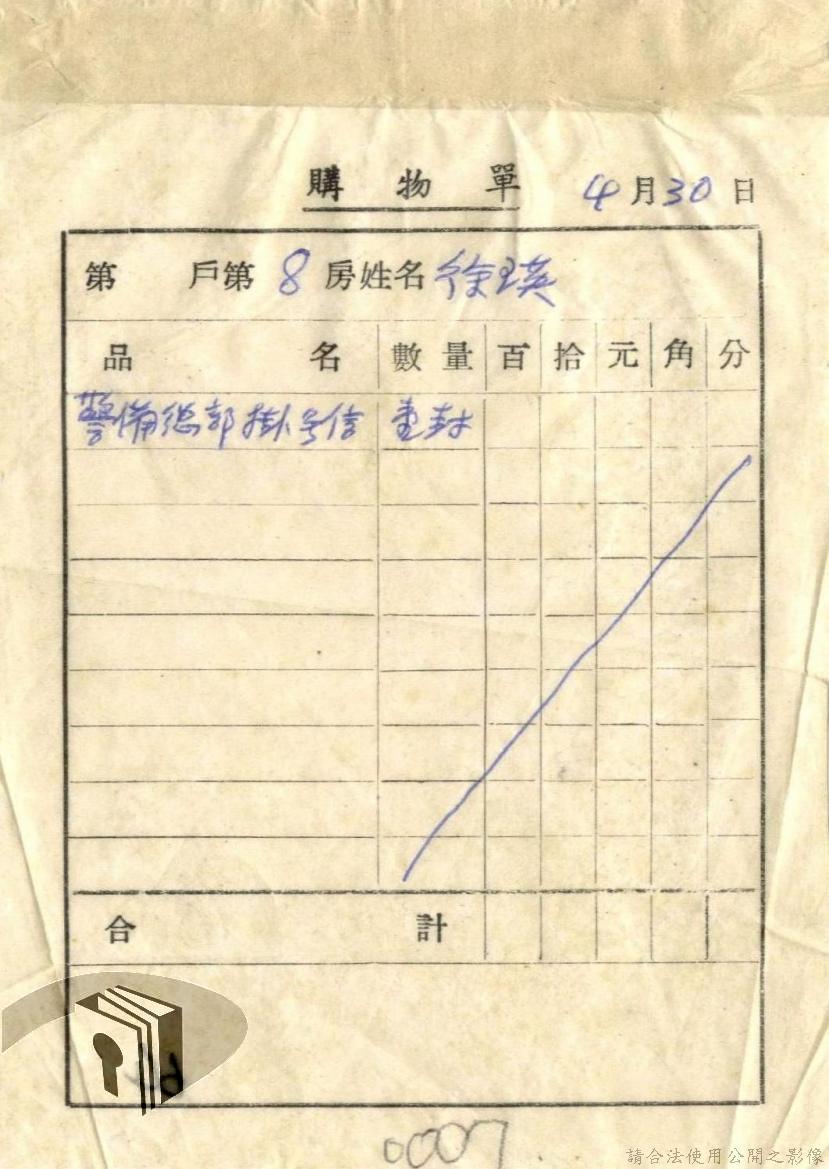 購物單 4月30日
第 戶第 8 房姓名 徐玉英
品名 數量 百 拾 元 角 分
警備總部掛号信 壹封
合計
0007
請合法使用公開之影像